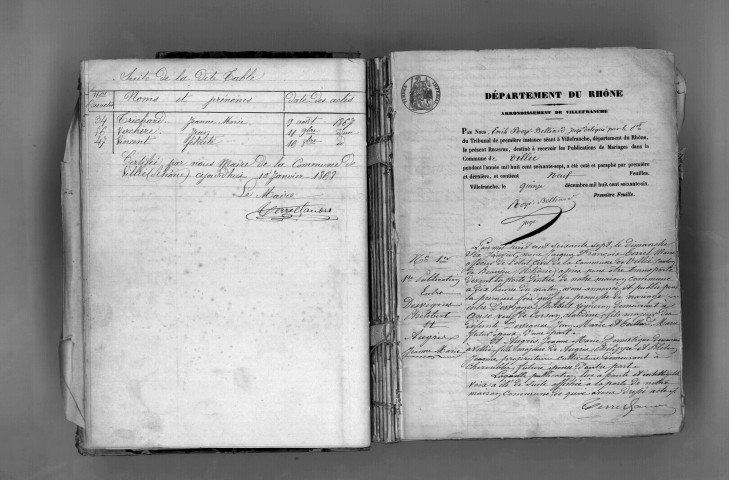 Suite de la Dite Table
Nos
Noms et prénoms
Date des actes
34 Trichard Jeanne Marie 9 avril 1867
Verchère Jean 11 9bre
47 Vincent 10 8bre d
Certifié par nous Maire de la Commune de
Villié (Rhône) ce jourd'hui 10 janvier 1868
Le Maire
DÉPARTEMENT DU RHÔNE
ARRONDISSEMENT DE VILLEFRANCHE
PAR NOUS, juge délégué par le Pdt
du Tribunal de première instance séant à Villefranche, département du Rhône,
le présent REGISTRE, destiné à recevoir les Publications de Mariages dans la
Commune de Villié
pendant l'année mil huit cent soixante-sept, a été coté et paraphé par première
et dernière, et contient Neuf Feuilles.
Villefranche, le quinze décembre mil huit cent soixante-six.
Première Feuille.
juge
No 1er
1re Publication
Entre
Desvignes
Philibert
Et
Augros
Jeanne Marie
L'an mil huit cent soixante sept, le dimanche
janvier, nous François Maire
officier de l'état civil de la Commune de Villié, canton
de Beaujeu (Rhône) après nous être transporté
devant la porte d'entrée de notre maison commune
à dix heures du matin, avons annoncé et publié pour
la première fois qu'il y a promesse de mariage
entre Desvignes Philibert vigneron demeurant à
fils majeur de
défunts Desvignes Jean Marie et
futur époux d'une part
Et Augros Jeanne Marie domestique demeurant
à Villié, fille majeure de Augros et
Jeanne, propriétaires cultivateurs demeurant à
Chiroubles, future épouse d'autre part.
Laquelle publication, lue à haute et intelligible
voix a été de suite affichée à la porte de notre
maison Commune, de quoi avons dressé acte